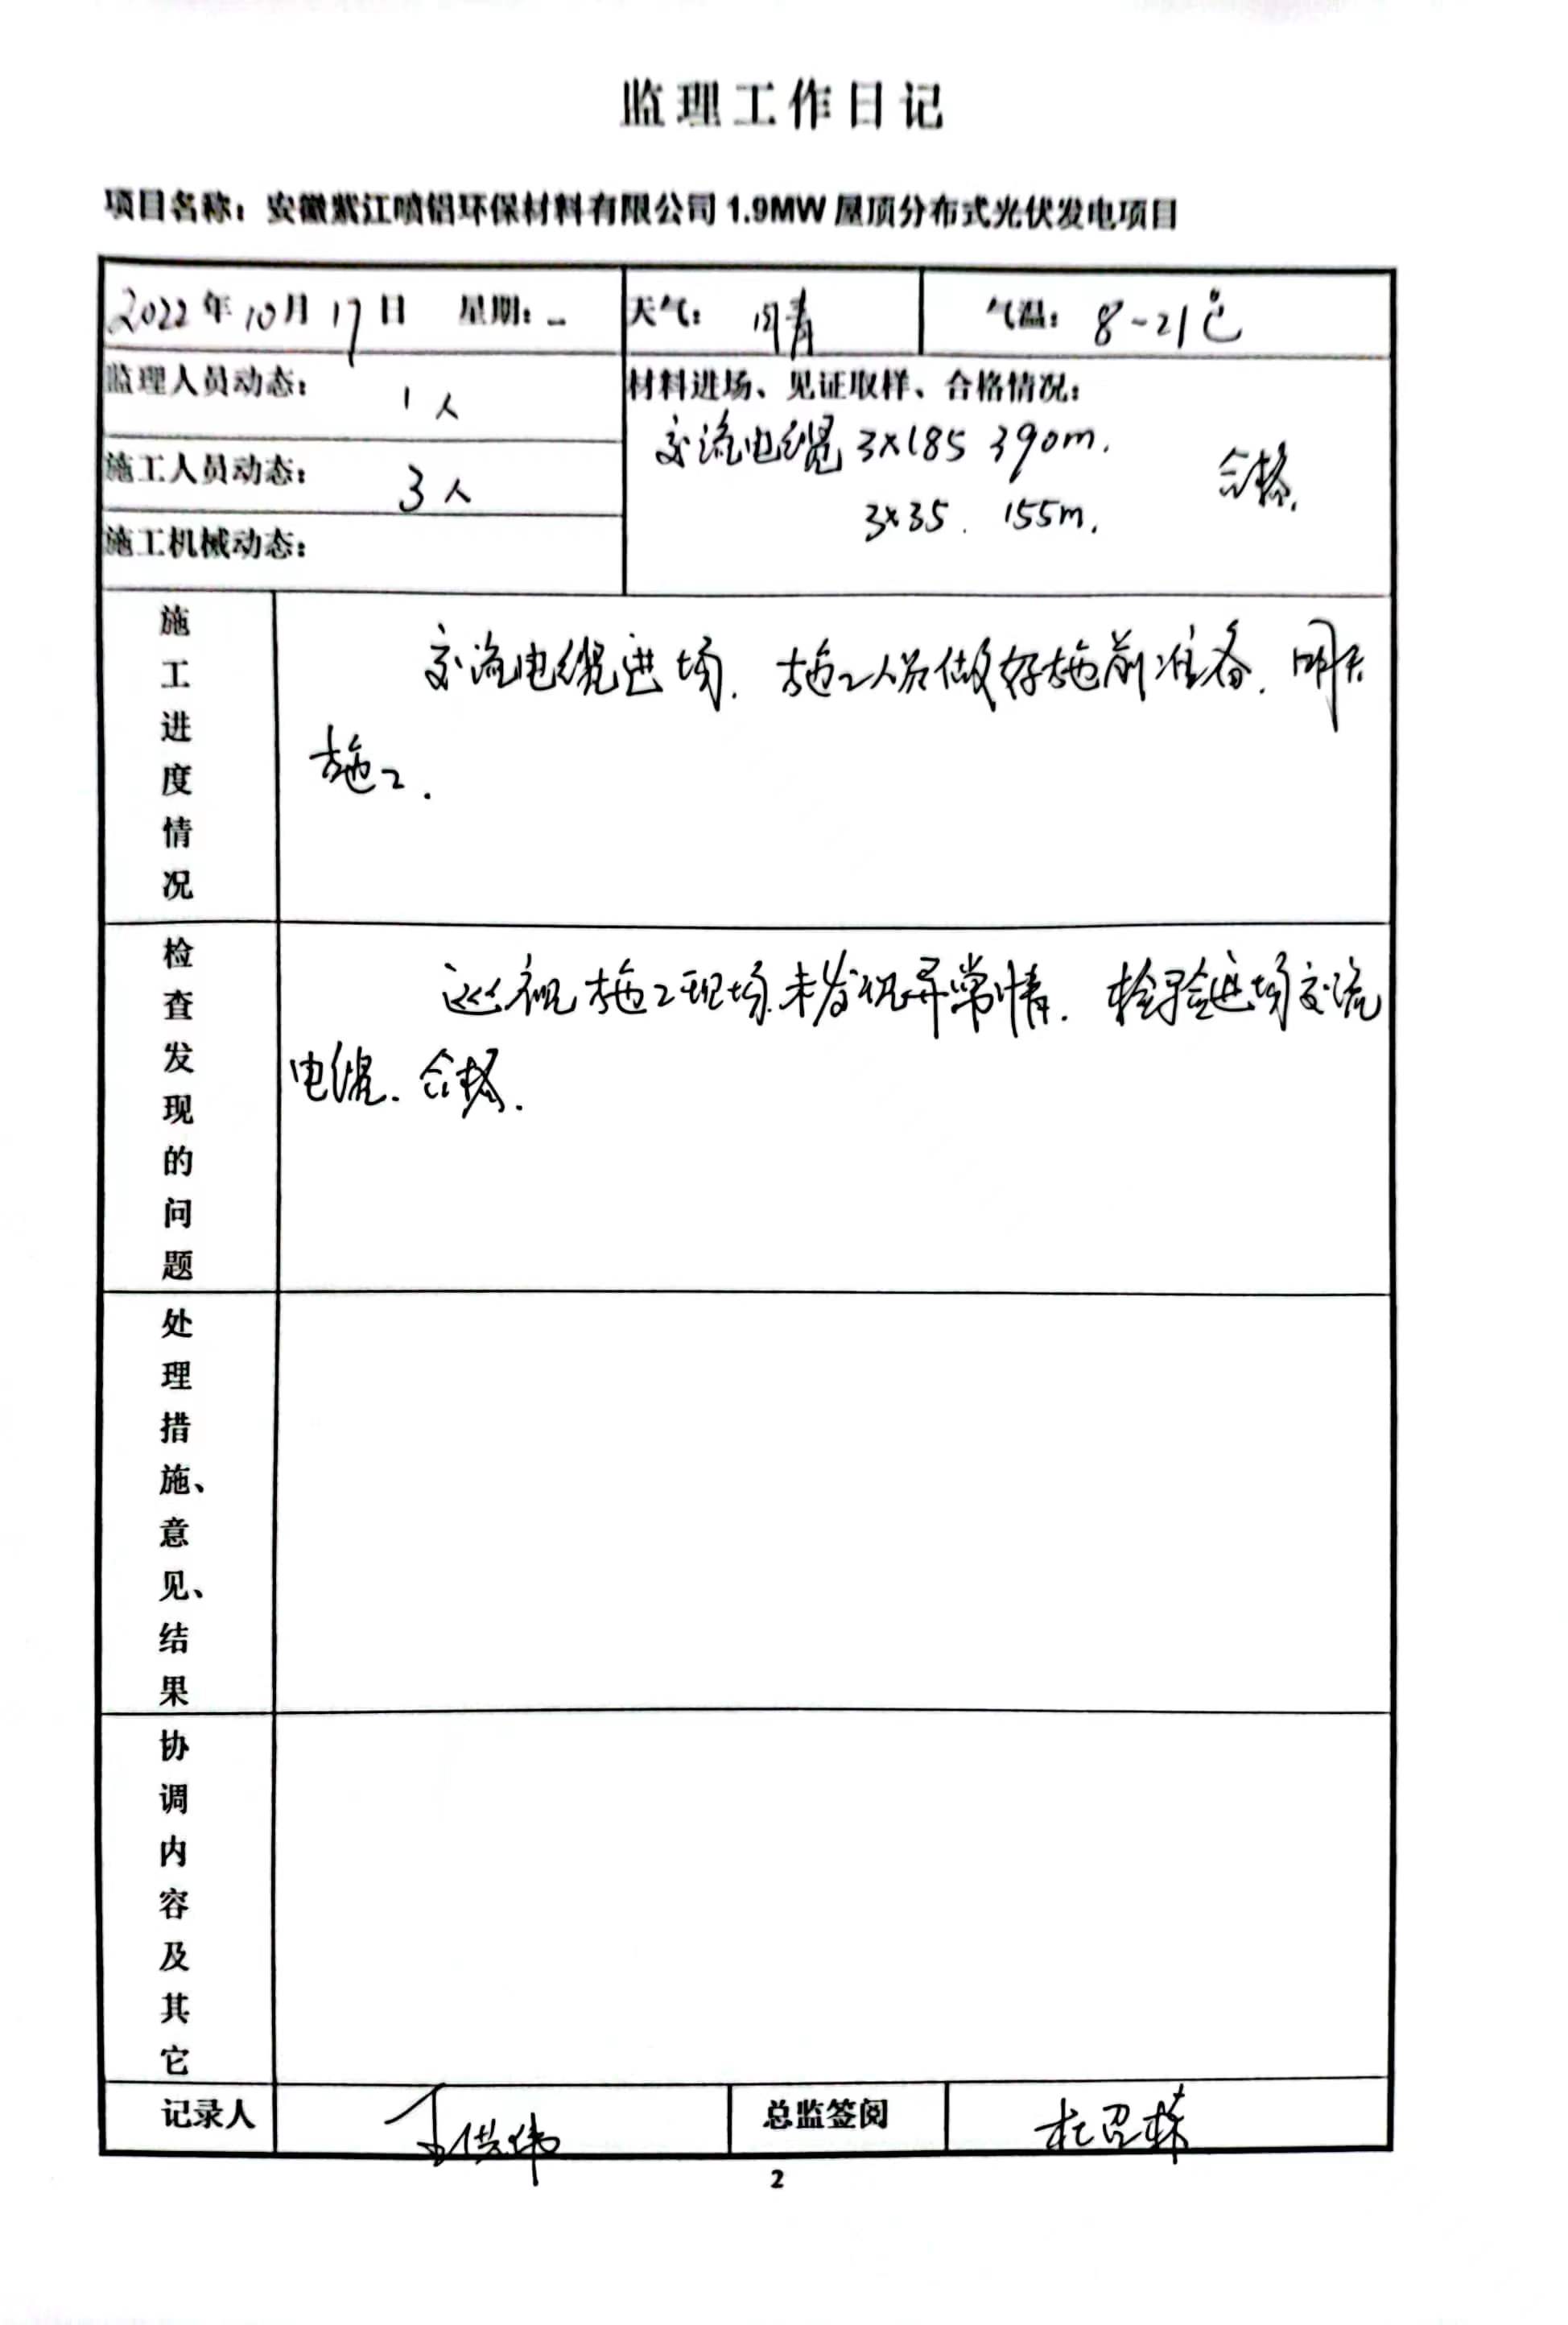 监理工作日记
项目名称：安徽紫江喷铝环保材料有限公司 1.9MW 屋顶分布式光伏发电项目
2022 年 10 月 17 日 星期：一 天气： 晴 气温： 8~21℃
监理人员动态： 1人
材料进场、见证取样、合格情况：
交流电缆 3×185 390m.
合格.
施工人员动态： 3人
3×35. 155m.
施工机械动态：
施工进度情况
交流电缆进场. 施工人员做好施前准备. 明天
施工.
检查发现的问题
巡视施工现场.未发现异常情. 检验进场交流
电缆. 合格.
处理措施、意见、结果
协调内容及其它
记录人 总监签阅
2